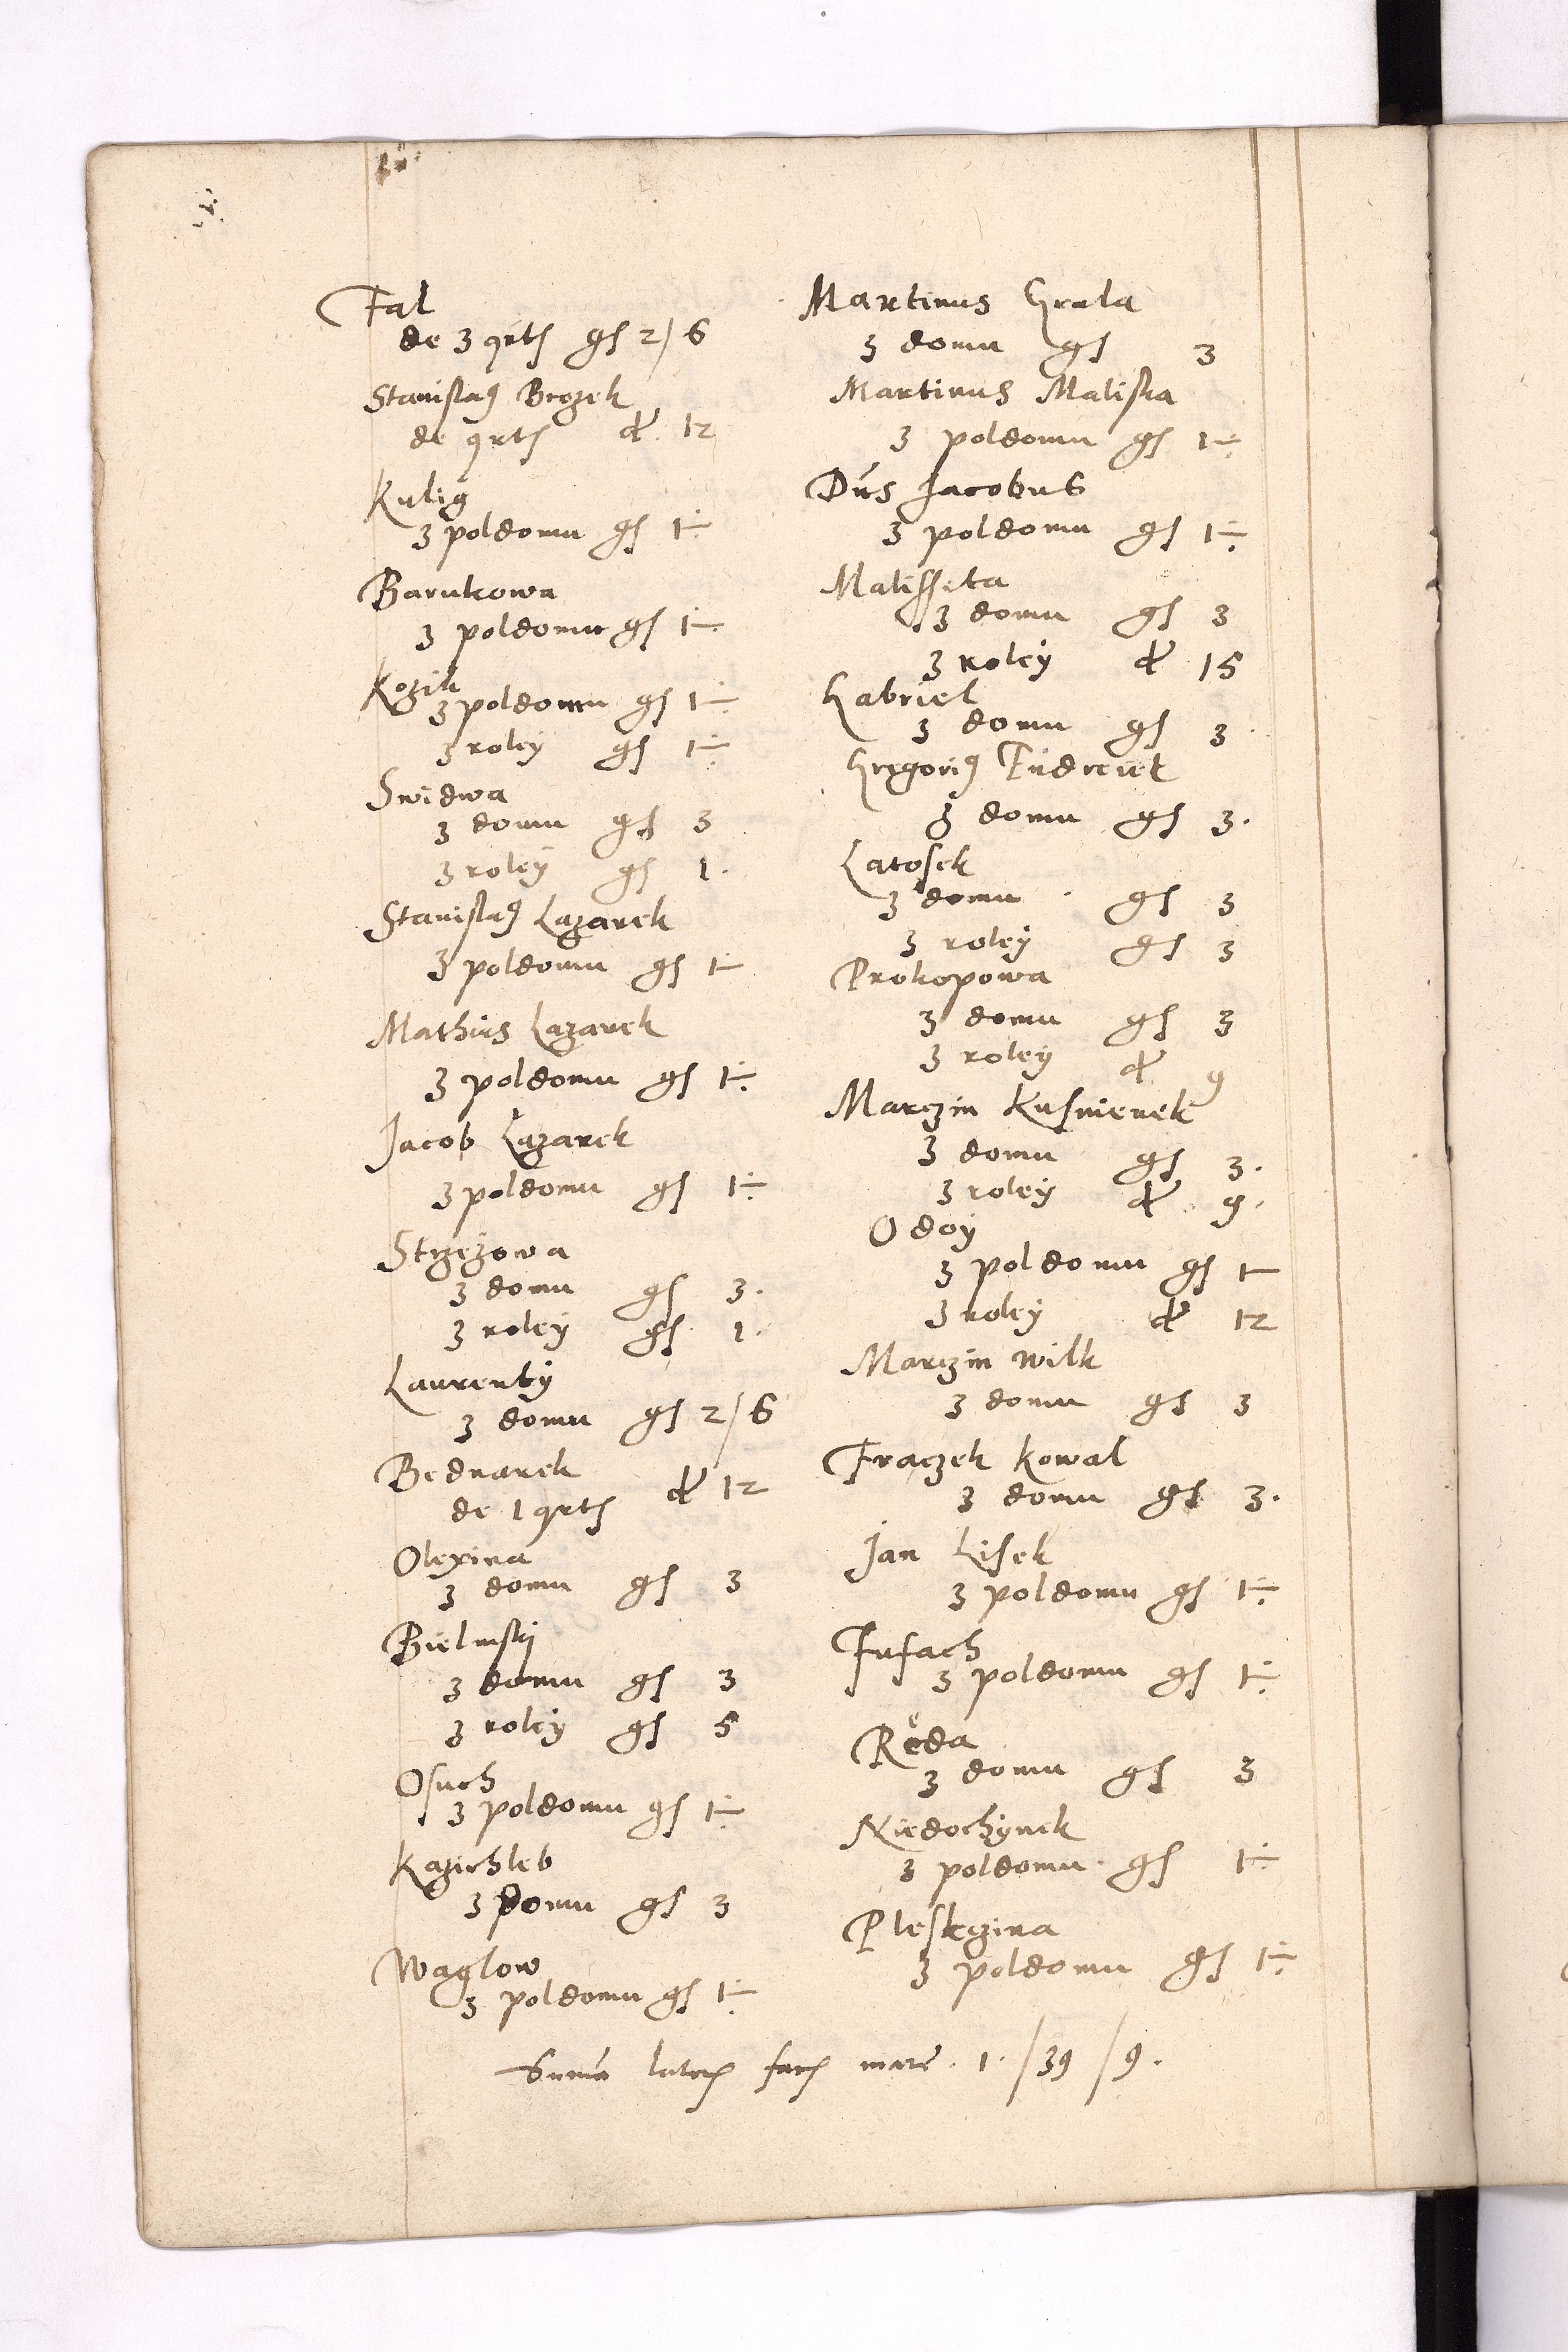 Fal
de 3 qrts gs 2/6
Stanislaus Brozek
de qrts d 12
Kulig
z poldomu gs 1÷
Barukowa
z poldomu gs 1÷
Kozik
z poldomu gs 1÷
z roley gs 1÷
Swidwa
z domu gs 3
z roley gs 1.
Stanislaus Lazarek
z poldomu gs 1÷
Mathias Lazarek
z poldomu gs 1÷
Jacob Lazarek
z poldomu gs 1÷
Strzezowa
z domu gs 3.
z roley gs 1.
Laurenty
z domu gs 2/6
Bednarek
de 1 qrts d 12
Olexina
z domu gs 3
Bielinski
z domu gs 3
z roley gs 5
Osuch
z poldomu gs 1÷
Kazichleb
z domu gs 3
Waglow
z poldomu gs 1÷
Martinus Grala
z domu gs 3
Martinus Maliska
z poldomu gs 1÷
Dns Jacobus
z poldomu gs 1÷
Malisseta
z domu gs 3
z roley d 15
Gabriel
z domu gs 3
Gregorius
z domu gs 3.
Latosek
z domu gs 3
z roley gs 3
Prokopowa
z domu gs 3
z roley d 9
Marczin Kusnierek
z domu gs 3.
z roley d 9.
Odoy
z poldomu gs 1÷
z roley d 12
Marczin Wilk
z domu gs 3
Fraczek Kowal
z domu gs 3.
Jan Lisek
z poldomu gs 1÷
Fusach
z poldomu gs 1÷
Reda
z domu gs 3
Niedochynek
z poldomu gs 1÷
Pleskczina
z poldomu gs 1÷
Suma lateris facit marc. 1./39/9.